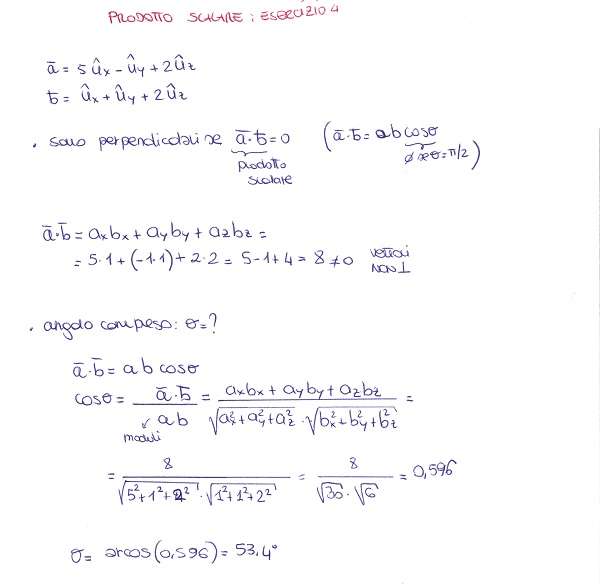 PRODOTTO SCALARE: ESERCIZIO 4
a̅ = 5 ûx - ûy + 2ûz
b̅ = ûx + ûy + 2ûz
• sono perpendicolari se a̅·b̅=0 (a̅·b̅= ab cosσ
prodotto scalare
∅ se σ=π/2)
a̅·b̅ = axbx + ayby + azbz =
= 5·1 + (-1·1) + 2·2 = 5-1+4 = 8 ≠0 vettori NON ⊥
• angolo compreso: σ=?
a̅·b̅ = ab cosσ
cosσ = a̅·b̅ / ab = axbx + ayby + azbz / √ax²+ay²+az² · √bx²+by²+bz² =
moduli
= 8 / √5²+1²+2² · √1²+1²+2² = 8 / √30 · √6 = 0,596
σ= arcos(0,596) = 53,4°